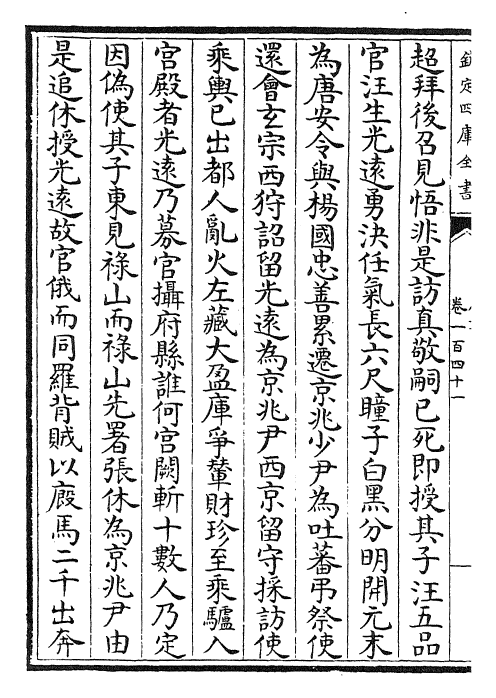 欽定四庫全書
卷一百四十一
超拜後召見悟非是訪真敬嗣已死即授其子汪五品
官汪生光遠勇決任氣長六尺瞳子白黑分明開元末
為唐安令與楊國忠善累遷京兆少尹為吐蕃弔祭使
還會玄宗西狩詔留光遠為京兆尹西京留守採訪使
乘輿已出都人亂火左藏大盈庫爭輦財珍至乘驢入
宮殿者光遠乃募官攝府縣誰何宮闕斬十數人乃定
因偽使其子東見祿山而祿山先署張休為京兆尹由
是追休授光遠故官俄而同羅背賊以廄馬二千出奔